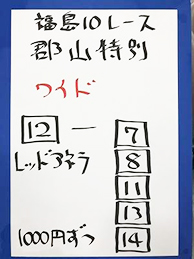 福島10レース
郡山特別
ワイド
12 ー 7
8
11
13
14
レッドアネラ
1000円ずつ